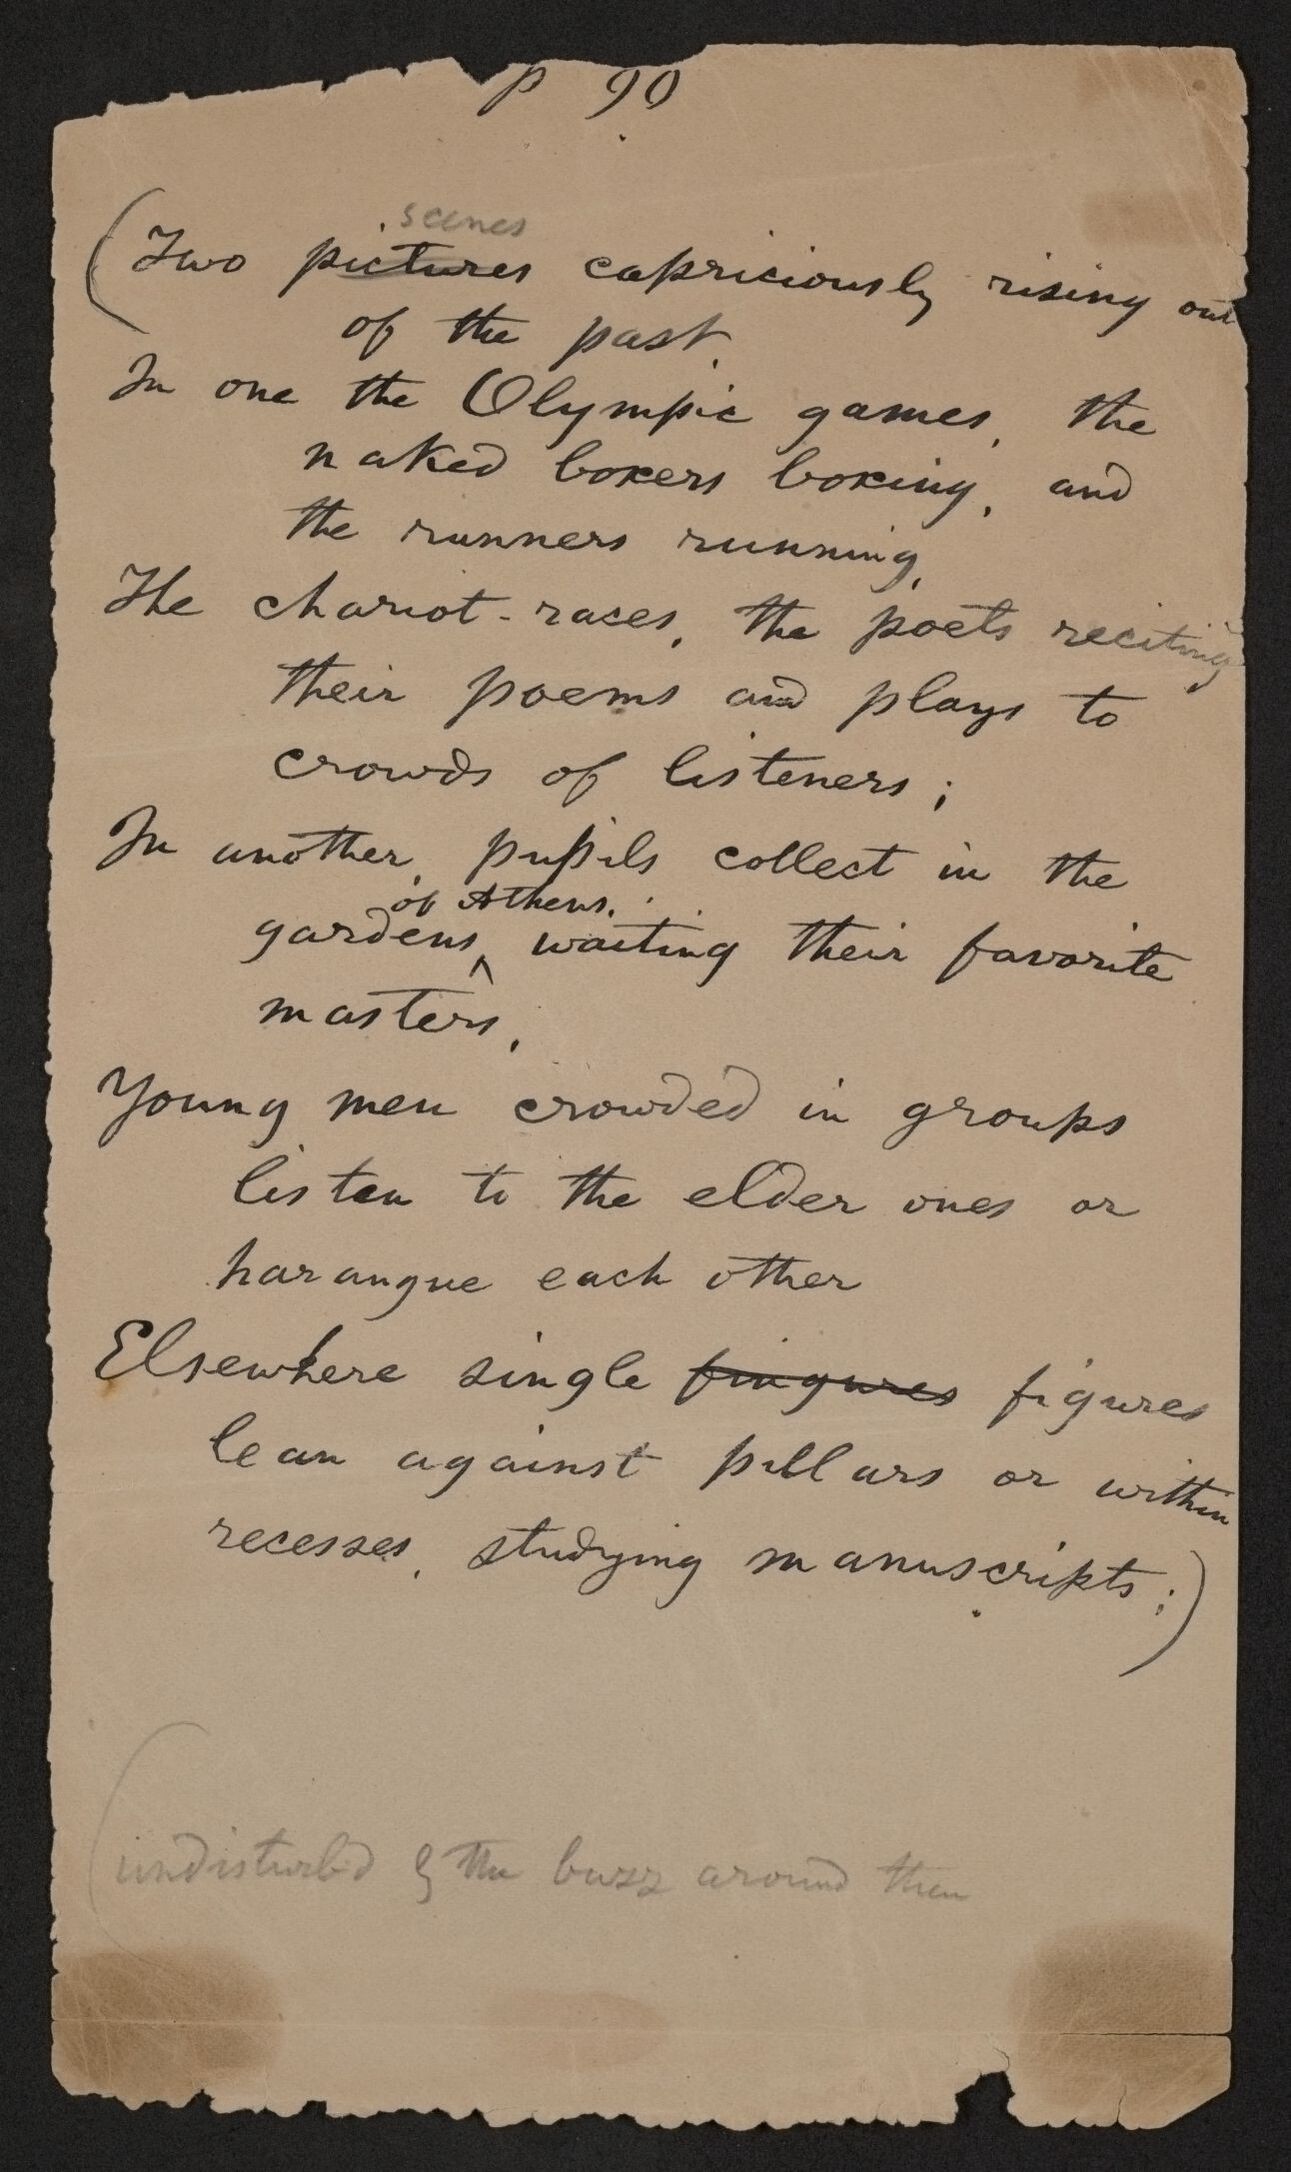 p 90
scenes
(Two pictures capriciously rising out
of the past.
In one the Olympic games, the
naked boxers boxing, and
the runners running,
The chariot-races, the poets reciting
their poems and plays to
crowds of listeners;
In another, pupils collect in the
of Athens.
gardens ^ waiting their favorite
masters,
Young men crowded in groups
listen to the elder ones or
harangue each other
Elsewhere single fingures figures
lean against pillars or within
recesses, studying manuscripts;)
(undisturbd by the buzz around them